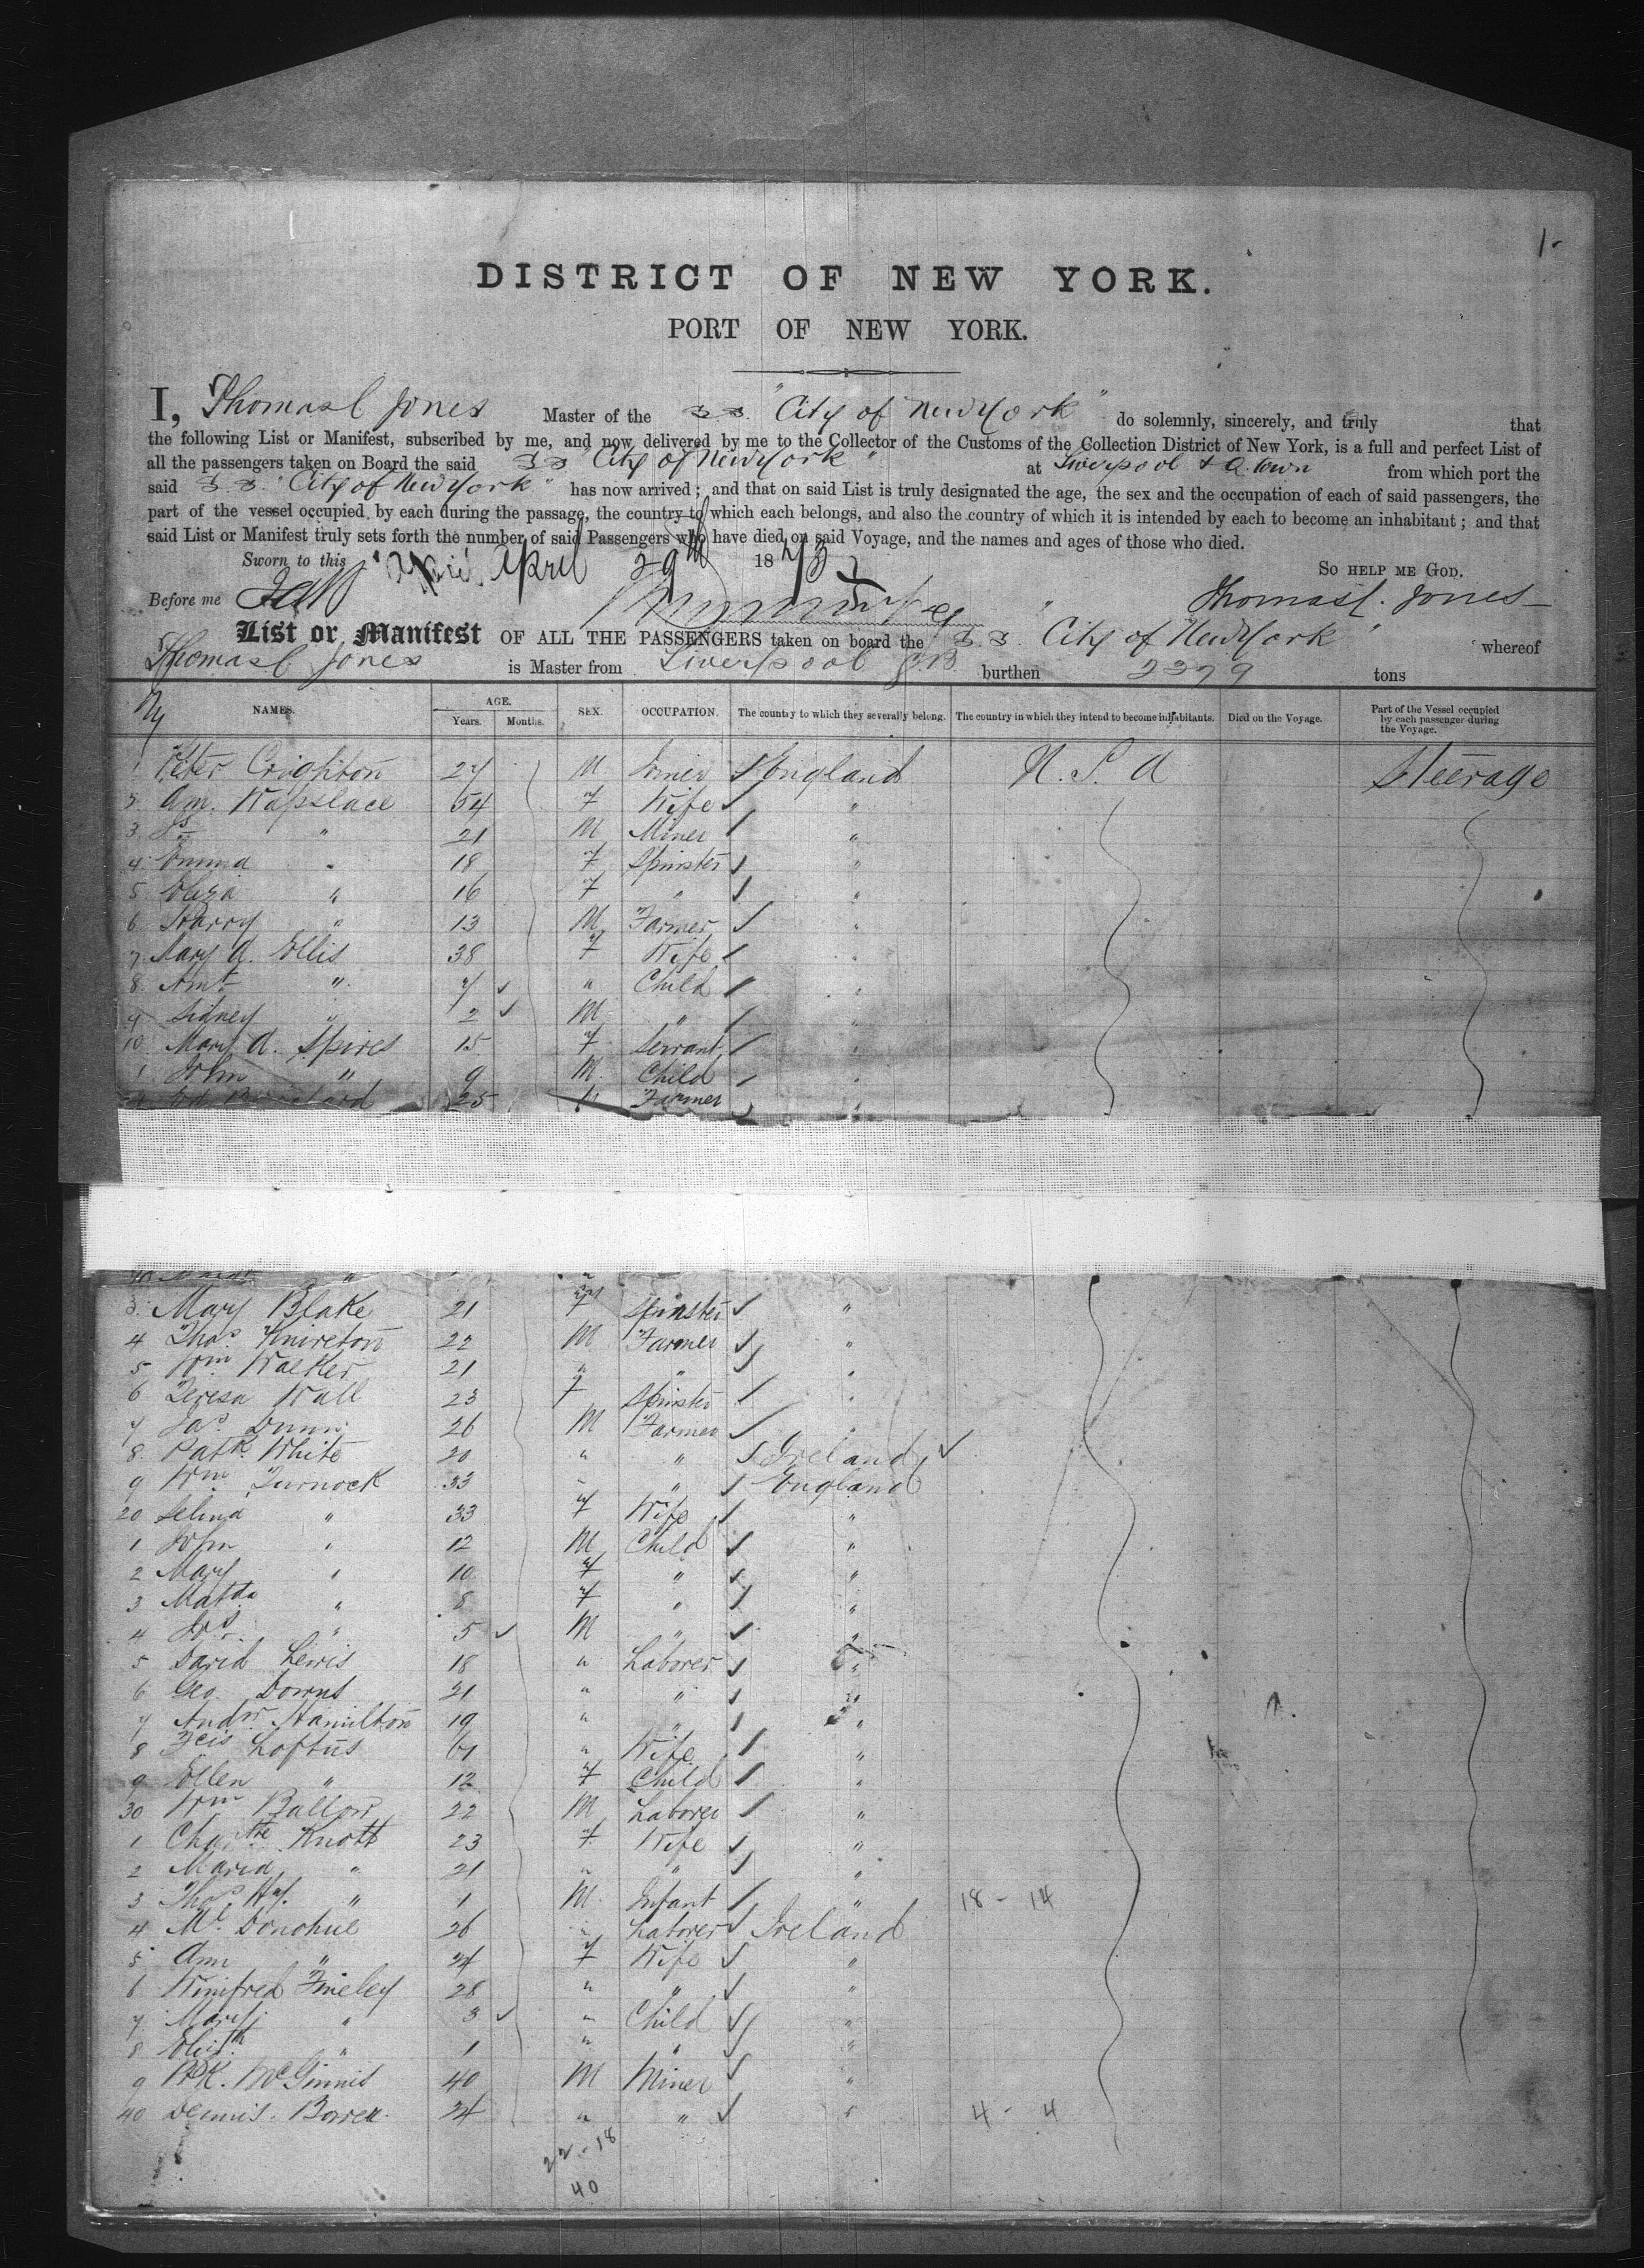 1-
DISTRICT OF NEW YORK.
PORT OF NEW YORK.
I, Thomas C Jones Master of the S.S. "City of New York" do solemnly, sincerely, and truly that
the following List or Manifest, subscribed by me, and now delivered by me to the Collector of the Customs of the Collection District of New York, is a full and perfect List of
all the passengers taken on Board the said S S "City of New York" at Liverpool & Q. town from which port the
said S.S. "City of New York" has now arrived; and that on said List is truly designated the age, the sex and the occupation of each of said passengers, the
part of the vessel occupied by each during the passage, the country to which each belongs, and also the country of which it is intended by each to become an inhabitant; and that
said List or Manifest truly sets forth the number of said Passengers who have died on said Voyage, and the names and ages of those who died.
Sworn to this April 29th 1873
So HELP ME GOD.
Before me Thomas C. Jones
List or Manifest OF ALL THE PASSENGERS taken on board the S S City of New York" whereof
Thomas C Jones is Master from Liverpool burthen 2379 tons
NAMES. AGE. Years. Months. SEX. OCCUPATION. The country to which they severally belong. The country in which they intend to become inhabitants. Died on the Voyage. Part of the Vessel occupied by each passenger during the Voyage.
1 Peter Crighton 27 M England U.S.A Steerage
2 Wife "
3 " 21 M Miner "
4 Emma " 18 F Spinster "
5 Eliza " 16 F " "
6 Harry " 13 M Farmer "
7 Mary A. Ellis 38 F Wife "
8 " 7 " Child "
9 Sidney " 2 M " "
10 Mary A. Spires 15 F Servant "
1 John " 9 M Child "
25 Farmer "
" "
3 Mary Blake 21 F Spinster "
4 Thos Knireton 22 M Farmer "
5 Wm Walker 21 " " "
6 Teresa Wall 23 F Spinster "
7 Jas Dunn 26 M Farmer "
8 Patk White 20 " " Ireland
9 Wm Turnock 33 " " England
20 Selina " 33 F Wife "
1 John " 12 M Child "
2 Mary " 10 F " "
3 Matda " 8 F " "
4 Jos " 5 M " "
5 David Lewis 18 " Laborer "
6 Geo Downs 21 " " "
7 Andw Hamilton 19 " " "
8 Fcis Loftus 61 " Wife "
9 Ellen " 12 F Child "
30 Wm Ballon 22 M Laborer "
1 Knott 23 F Wife "
2 Maria " 21 " " "
3 Thos Hy. " 1 M Infant " 18 - 14
4 Ml Donohue 26 " Laborer Ireland
5 Ann " 24 F Wife "
6 Winifred Fineley 28 " " "
7 Mary " 3 " Child "
8 Elizth " 1 " " "
9 Patk. McGinnis 40 M Miner "
40 Dennis. 34 " " " 4 - 4
22 - 18
40